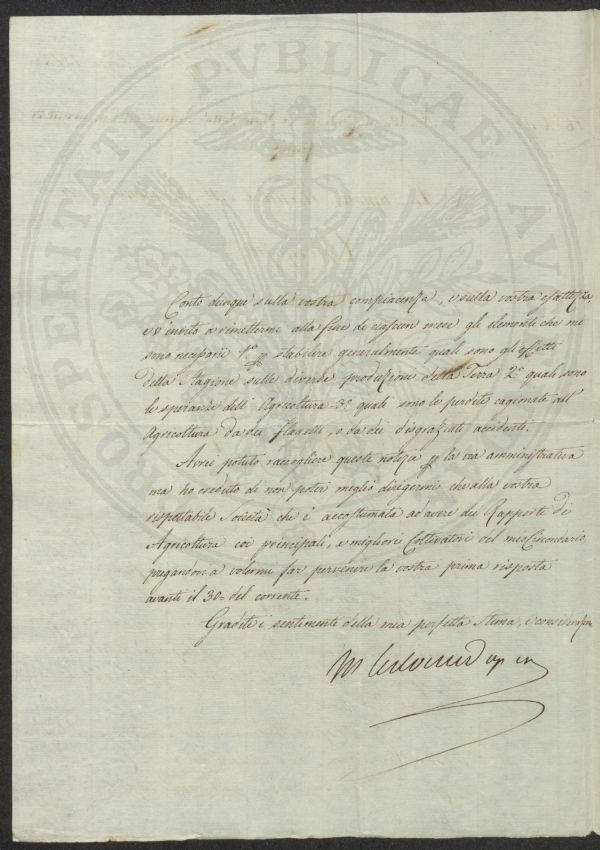 PROSPERITATI PVBLICAE AV
Conto dunque sulla vostra compiacenza, e sulla vostra esattezza,
e v'invito a rimettermi alla fine di ciascun mese gli elementi che mi
sono necessarii 1.º p stabilire generalmente quali sono gli effetti
della Stagione sulle diverse produzioni della Terra 2º quali sono
le speranze dell'Agricoltura 3º quali sono le perdite cagionate all'
Agricoltura da dei flagelli, o da dei disgraziati accidenti.
Avrei potuto raccogliere queste notizie p la via amministrativa
ma ho creduto di non poter meglio dirigermi che alla vostra
rispettabile Società che è accostumata ad avere dei Rapporti di
Agricoltura coi principali, e migliori Coltivatori del mio Circondario,
pregandovi a volermi far pervenire la vostra prima risposta
avanti il 30 = del corrente.
Gradite i sentimenti della mia perfetta stima, e considerazione